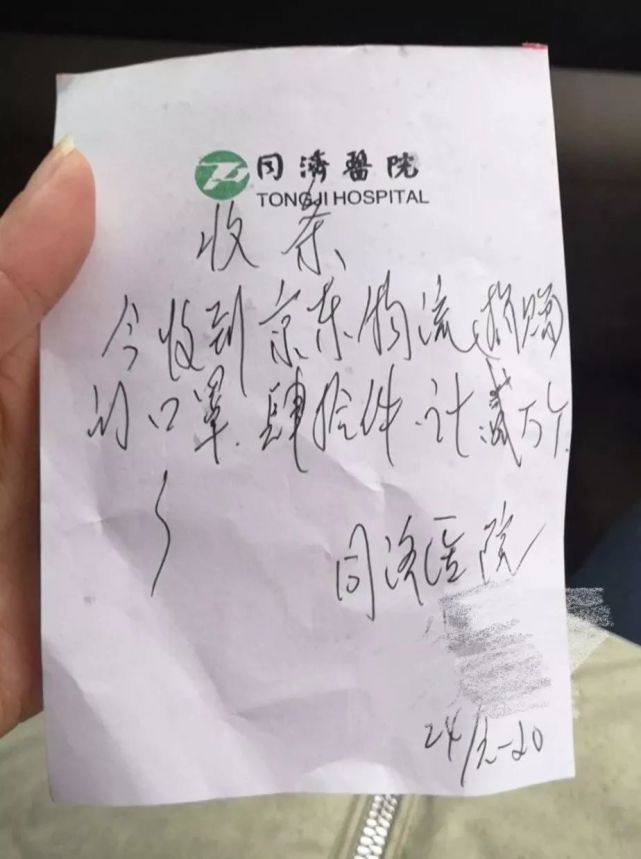 同濟醫院
TONGJI HOSPITAL
收条
今收到京东物流捐赠
的口罩.肆拾件.计贰万个.
同济医院
24/1-20